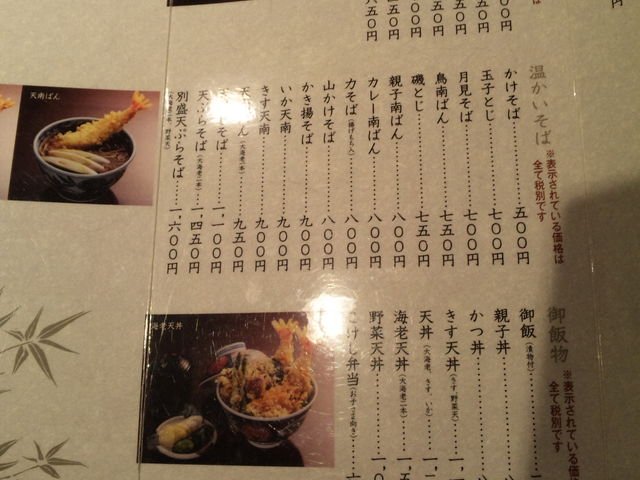 温かいそば
※表示されている価格は
全て税別です
かけそば 五〇〇円
玉子とじ 七〇〇円
月見そば 七〇〇円
鳥南ばん 七五〇円
磯とじ 七五〇円
親子南ばん 八〇〇円
カレー南ばん 八〇〇円
力そば(揚げもち入) 八〇〇円
山かけそば 八〇〇円
かき揚そば 九〇〇円
いか天南 九〇〇円
きす天南 九〇〇円
(大海老一本) 九五〇円
そば 一、一〇〇円
天ぷらそば(大海老二本) 一、四五〇円
別盛天ぷらそば(大海老二本、野菜天) 一、六〇〇円
天南ばん
御飯物
※表示されている価格は
全て税別です
御飯(漬物付)
親子丼
かつ丼
きす天丼(きす、野菜天)
天丼(大海老、きす、いか)
海老天丼(大海老二本)
野菜天丼
こけし弁当(お子さま向き)
海老天丼